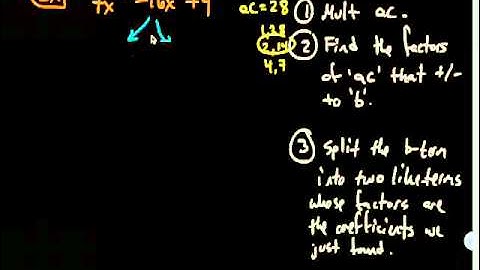 -16x
ac = 28
1,28
2,14
4,7
① Mult ac.
② Find the
factors
of 'ac' that +/-
to 'b'.
③ Split the b-term
into two like terms
whose factors are
the coefficients we
just found.